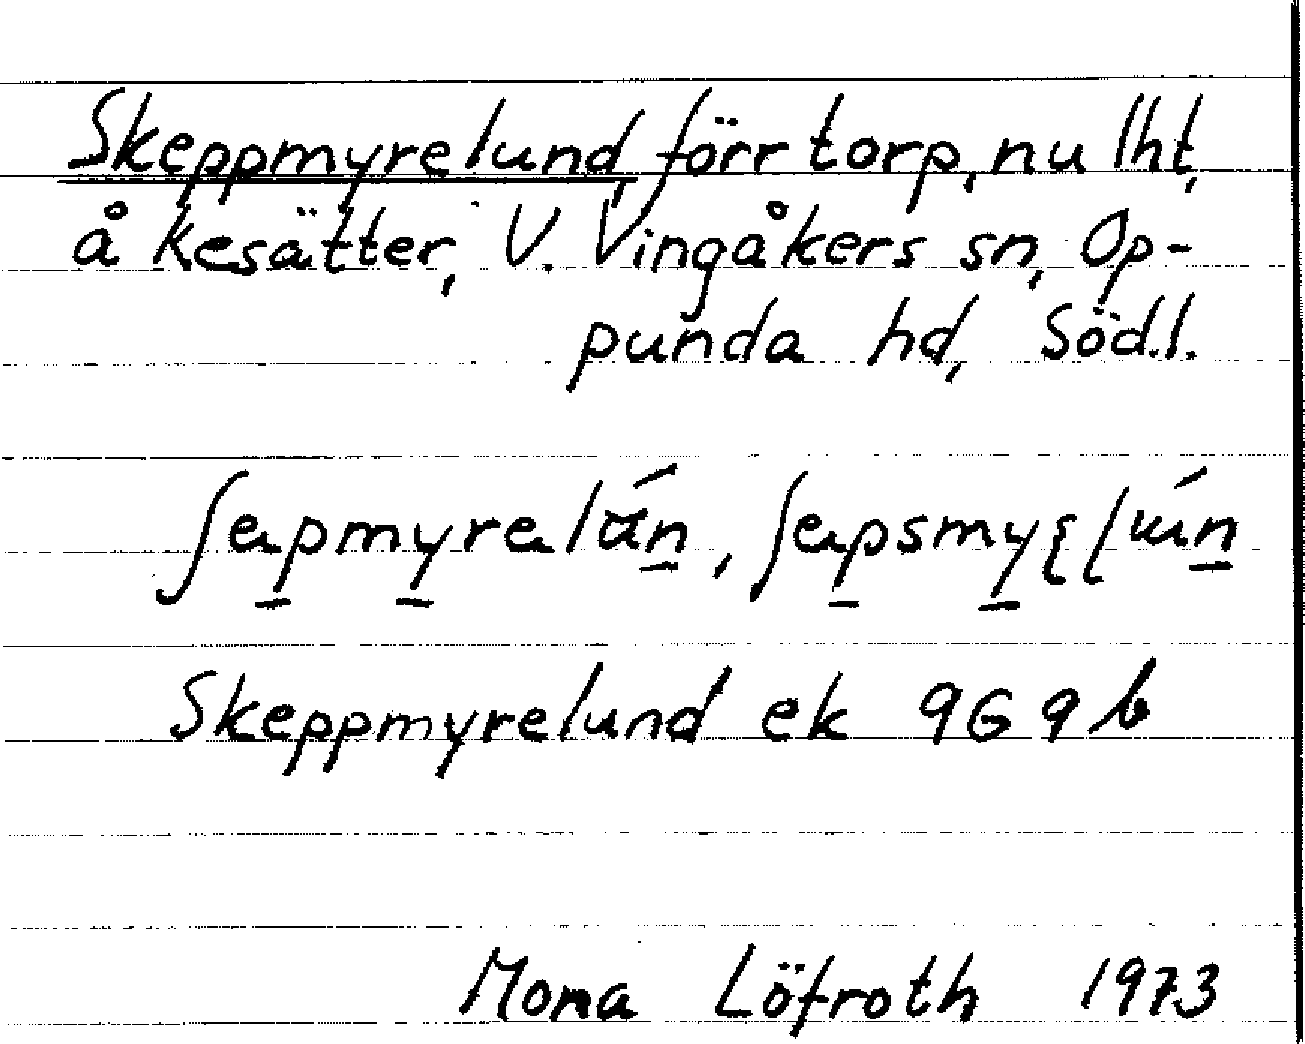 Skeppmyrelund, förr torp, nu lht,
å Kesätter, V. Vingåkers sn, Op-
punda hd, Söd.l.
Skeppmyrelund ek 9G9b
Mona Löfroth 1973